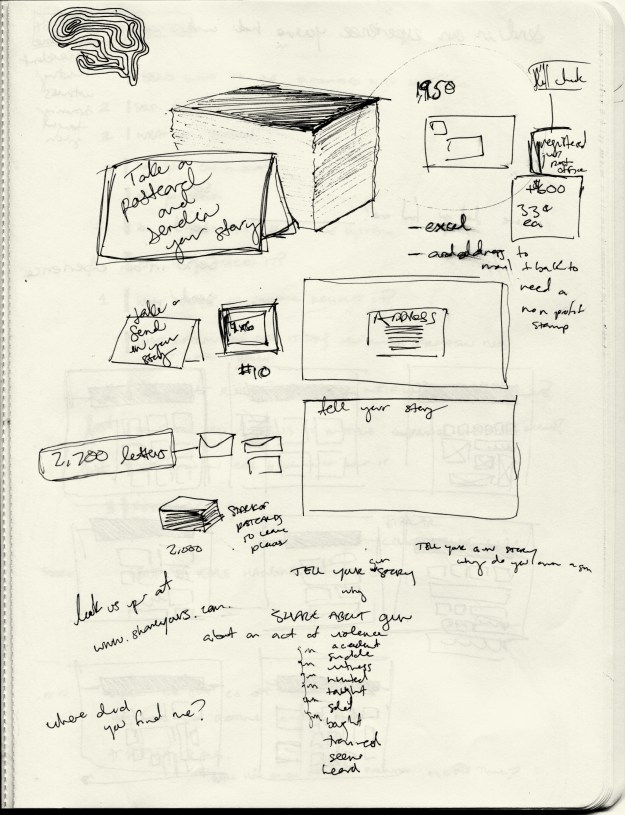 Take a
postcard
and
send in
your story
1950
registered
post
office
+$600
33¢
ea
- excel
- and address to
mail + back to
need a
non profit
stamp
take a
Send
in your
story
4x6
#10
ADDRESS
tell your story
2,200 letters
STACK OF
POSTCARDS
TO LEAVE
PLACES
2,000
TELL YOUR gun STORY
why
TELL YOUR GUN STORY
why do you own a gun
look us up at
www.shareyours.com.
SHARE ABOUT gun
about an act of violence
gun accident
gun suicide
gun witness
gun hunted
gun taught
gun sold
gun bought
trained
seen
heard
where did
you find me?